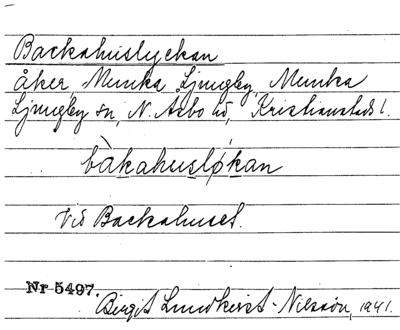 Backahuslyckan
åker, Munka Ljungby, Munka
Ljungby sn, N. Åsbo hd, Kristianstads l.
bàkahusløkan
Vid Backahuset.
Nr 5497.
Birgit Lundkvist-Nilsson, 1941.